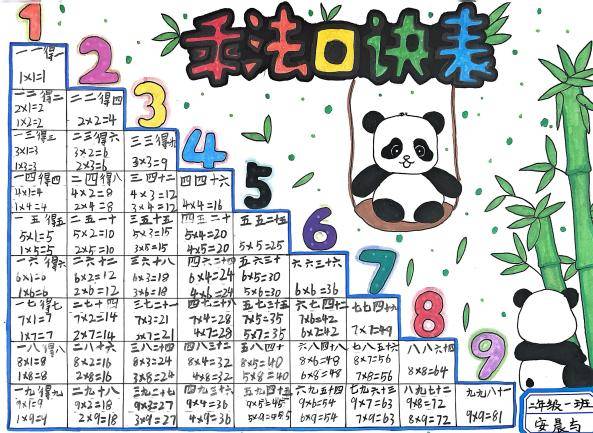 乘法口诀表
1
一一得一
1×1=1
2
一二得二 二二得四
2×1=2
1×2=2 2×2=4
3
一三得三 二三得六 三三得九
3×1=3 3×2=6
1×3=3 2×3=6 3×3=9
4
一四得四 二四得八 三四十二 四四十六
4×1=4 4×2=8 4×3=12
1×4=4 2×4=8 3×4=12 4×4=16
5
一五得五 二五一十 三五十五 四五二十 五五二十五
5×1=5 5×2=10 5×3=15 5×4=20
1×5=5 2×5=10 3×5=15 4×5=20 5×5=25
6
一六得六 二六十二 三六十八 四六二十四 五六三十 六六三十六
6×2=12 6×3=18 6×4=24 6×5=30
1×6=6 2×6=12 3×6=18 4×6=24 5×6=30 6×6=36
7
一七得七 二七十四 三七二十一 四七二十八 五七三十五 六七四十二 七七四十九
7×1=7 7×2=14 7×3=21 7×4=28 7×5=35 7×6=42
1×7=7 2×7=14 3×7=21 4×7=28 5×7=35 6×7=42 7×7=49
8
一八得八 二八十六 三八二十四 四八三十二 五八四十 六八四十八 七八五十六 八八六十四
8×1=8 8×2=16 8×3=24 8×4=32 8×5=40 8×6=48 8×7=56
1×8=8 2×8=16 3×8=24 4×8=32 5×8=40 6×8=48 7×8=56 8×8=64
9
一九得九 二九十八 三九二十七 四九三十六 五九四十五 六九五十四 七九六十三 八九七十二 九九八十一
9×1=9 9×2=18 9×3=27 9×4=36 9×5=45 9×6=54 9×7=63 9×8=72
1×9=9 2×9=18 3×9=27 4×9=36 6×9=54 7×9=63 8×9=72 9×9=81
二年级一班
安晨